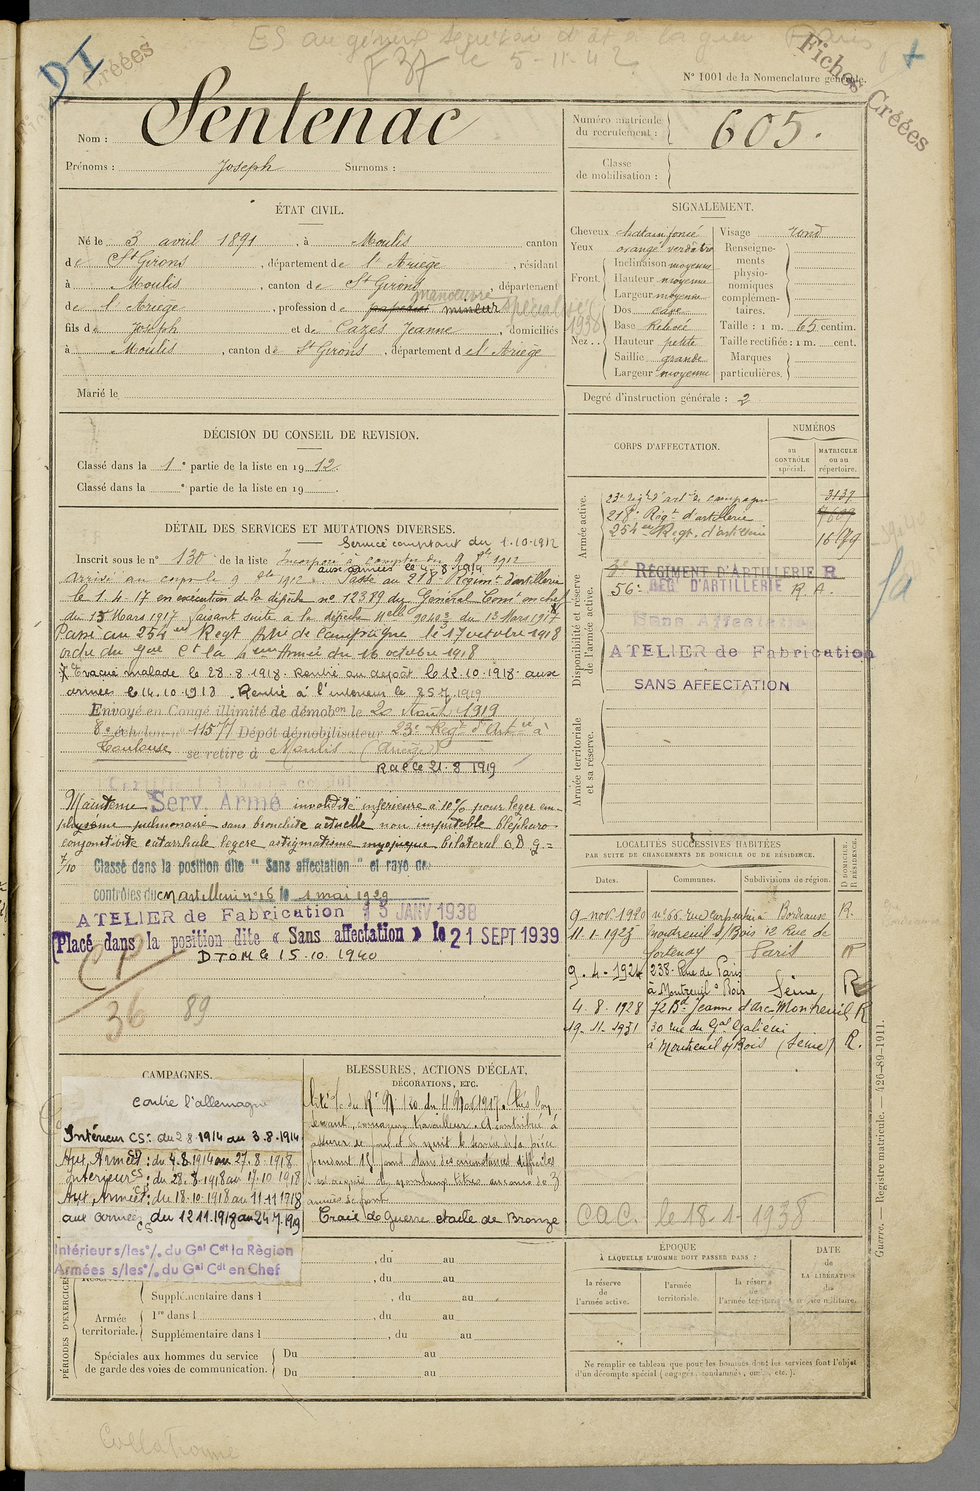 DI
Fiches Créées
Fiches Créées
le 5-11-42
N° 1001 de la Nomenclature générale.
Nom : Sentenac
Prénoms : Joseph Surnoms :
Numéro matricule du recrutement : 605.
Classe de mobilisation :
ÉTAT CIVIL.
Né le 3 avril 1891, à Moulis canton
de St Girons, département de l'Ariège, résidant
à Moulis, canton de St Girons, département
manoeuvre spécialisé 1938
de l'Ariège, profession de papetier mineur
fils de Joseph et de Cazes Jeanne, domiciliés
à Moulis, canton de St Girons, département de l'Ariège
Marié le
SIGNALEMENT.
Cheveux chatain foncé
Yeux orangé verdâtre
Front. Inclinaison moyenne
Hauteur moyenne
Largeur moyenne
Nez.. Dos cave
Base relevé
Hauteur petite
Saillie grande
Largeur moyenne
Visage rond
Renseignements physionomiques complémentaires.
Taille : 1 m. 65 centim.
Taille rectifiée : 1 m. cent.
Marques particulières.
Degré d'instruction générale : 2
DÉCISION DU CONSEIL DE REVISION.
Classé dans la 1e partie de la liste en 1912.
Classé dans la e partie de la liste en 19
DÉTAIL DES SERVICES ET MUTATIONS DIVERSES.
Service comptant du 1-10-1912
Inscrit sous le n° 130 de la liste Incorporé à compter du 9 8bre 1912
aux armées le 4-8-1914
Arrivé au corps le 9 8bre 1912 Passé au 218e Régiment d'artillerie
le 1.4.17 en exécution de la dépêche n° 12389 du Général Comt en chef
du 15 Mars 1917 faisant suite à la dépêche Melle 9040 du 13 Mars 1917
Passé au 254eme Regt Arie de Campagne le 17 octobre 1918
ordre du Gal Ct la 4eme Armée du 16 octobre 1918
Evacué malade le 28.8.1918. Rentré au dépôt le 12.10.1918. aux
armées le 14.10.1918. Rentré à l'intérieur le 25.7.1919
Envoyé en Congé illimité de démobon le 20 Août 1919
8e échelon n° 11577 Dépôt démobilisateur 23e Regt d'Artie à
Toulouse se retire à Moulis (Ariège)
RaC le 21-8 1919
Maintenu Serv. Armé invalidité inférieure à 10% pour léger em-
physème pulmonaire sans bronchite actuelle non imputable blépharo
conjonctivite catarrhale légère astigmatisme myopique bilatéral O.D.G.=
7/10 Classé dans la position dite " Sans affectation " et rayé des
contrôles du Mont. Meun n° 16 le 1 mai 1929
ATELIER de Fabrication 13 JANV 1938
Placé dans la position dite « Sans affectation » le 21 SEPT 1939
DTOM le 15.10.1940
36 89
CORPS D'AFFECTATION.
NUMÉROS
au CONTRÔLE spécial.
MATRICULE ou au répertoire.
Armée active.
23e régt d'artie de campagne 3137
218e Régt d'artillerie 7609
254eme Regt. d'artillerie 16479
Disponibilité et réserve de l'armée active.
3e RÉGIMENT D'ARTILLERIE R
56e REG D'ARTILLERIE R.A.
Sans Affectation
ATELIER de Fabrication
SANS AFFECTATION
Armée territoriale et sa réserve.
LOCALITÉS SUCCESSIVES HABITÉES
PAR SUITE DE CHANGEMENTS DE DOMICILE OU DE RÉSIDENCE.
Dates. Communes. Subdivisions de région. D. DOMICILE. R. RÉSIDENCE.
9-nov. 1920 n° 66 rue Carpentier à Bordeaux R.
11.1.1923 Montreuil s/Bois 12 Rue de
Fontenay Paris R
9-4-1924 238 Rue de Paris
à Montreuil s Bois Seine, R
4.8.1928 72 Bd Jeanne d'Arc Montreuil R
19-11-1931 30 rue du Gal Galieni
à Montreuil s/Bois (Seine) R.
CAMPAGNES.
contre l'allemagne
Intérieur CS: du 2 8 1914 au 3.8.1914
Aux Armées: du 4.8.1914 au 27.8.1918
intérieur CS: du 28.8.1918 au 17.10 1918
Aux Armées: du 18.10.1918 au 11 11 1918
aux armées CS du 12 11.1918 au 24 7.1919
Intérieur s/les°/. du Gal Cdt la Région
Armées s/les°/. du Gal Cdt en Chef
BLESSURES, ACTIONS D'ÉCLAT,
DÉCORATIONS, ETC.
Cité du 1917. Très bon
servant, courageux travailleur. A contribué à
assurer de jour et de nuit le service de la pièce
pendant 15 jours dans des circonstances difficiles
3
années de front
Croix de Guerre étoile de Bronze
C.A.C. le 18-1-1938
PÉRIODES D'EXERCICES
, du au
, du au
Supplémentaire dans l , du au
Armée territoriale. 1re dans l , du au
Supplémentaire dans l , du au
Spéciales aux hommes du service de garde des voies de communication. Du au
Du au
ÉPOQUE
À LAQUELLE L'HOMME DOIT PASSER DANS :
la réserve de l'armée active.
l'armée territoriale.
la réserve de l'armée territoriale
DATE de LA LIBÉRATION du service militaire.
Ne remplir ce tableau que pour les hommes dont les services font l'objet
d'un décompte spécial (engagés, condamnés, omis, etc.).
Guerre. — Registre matricule. — 426-89-1911.
Collationné